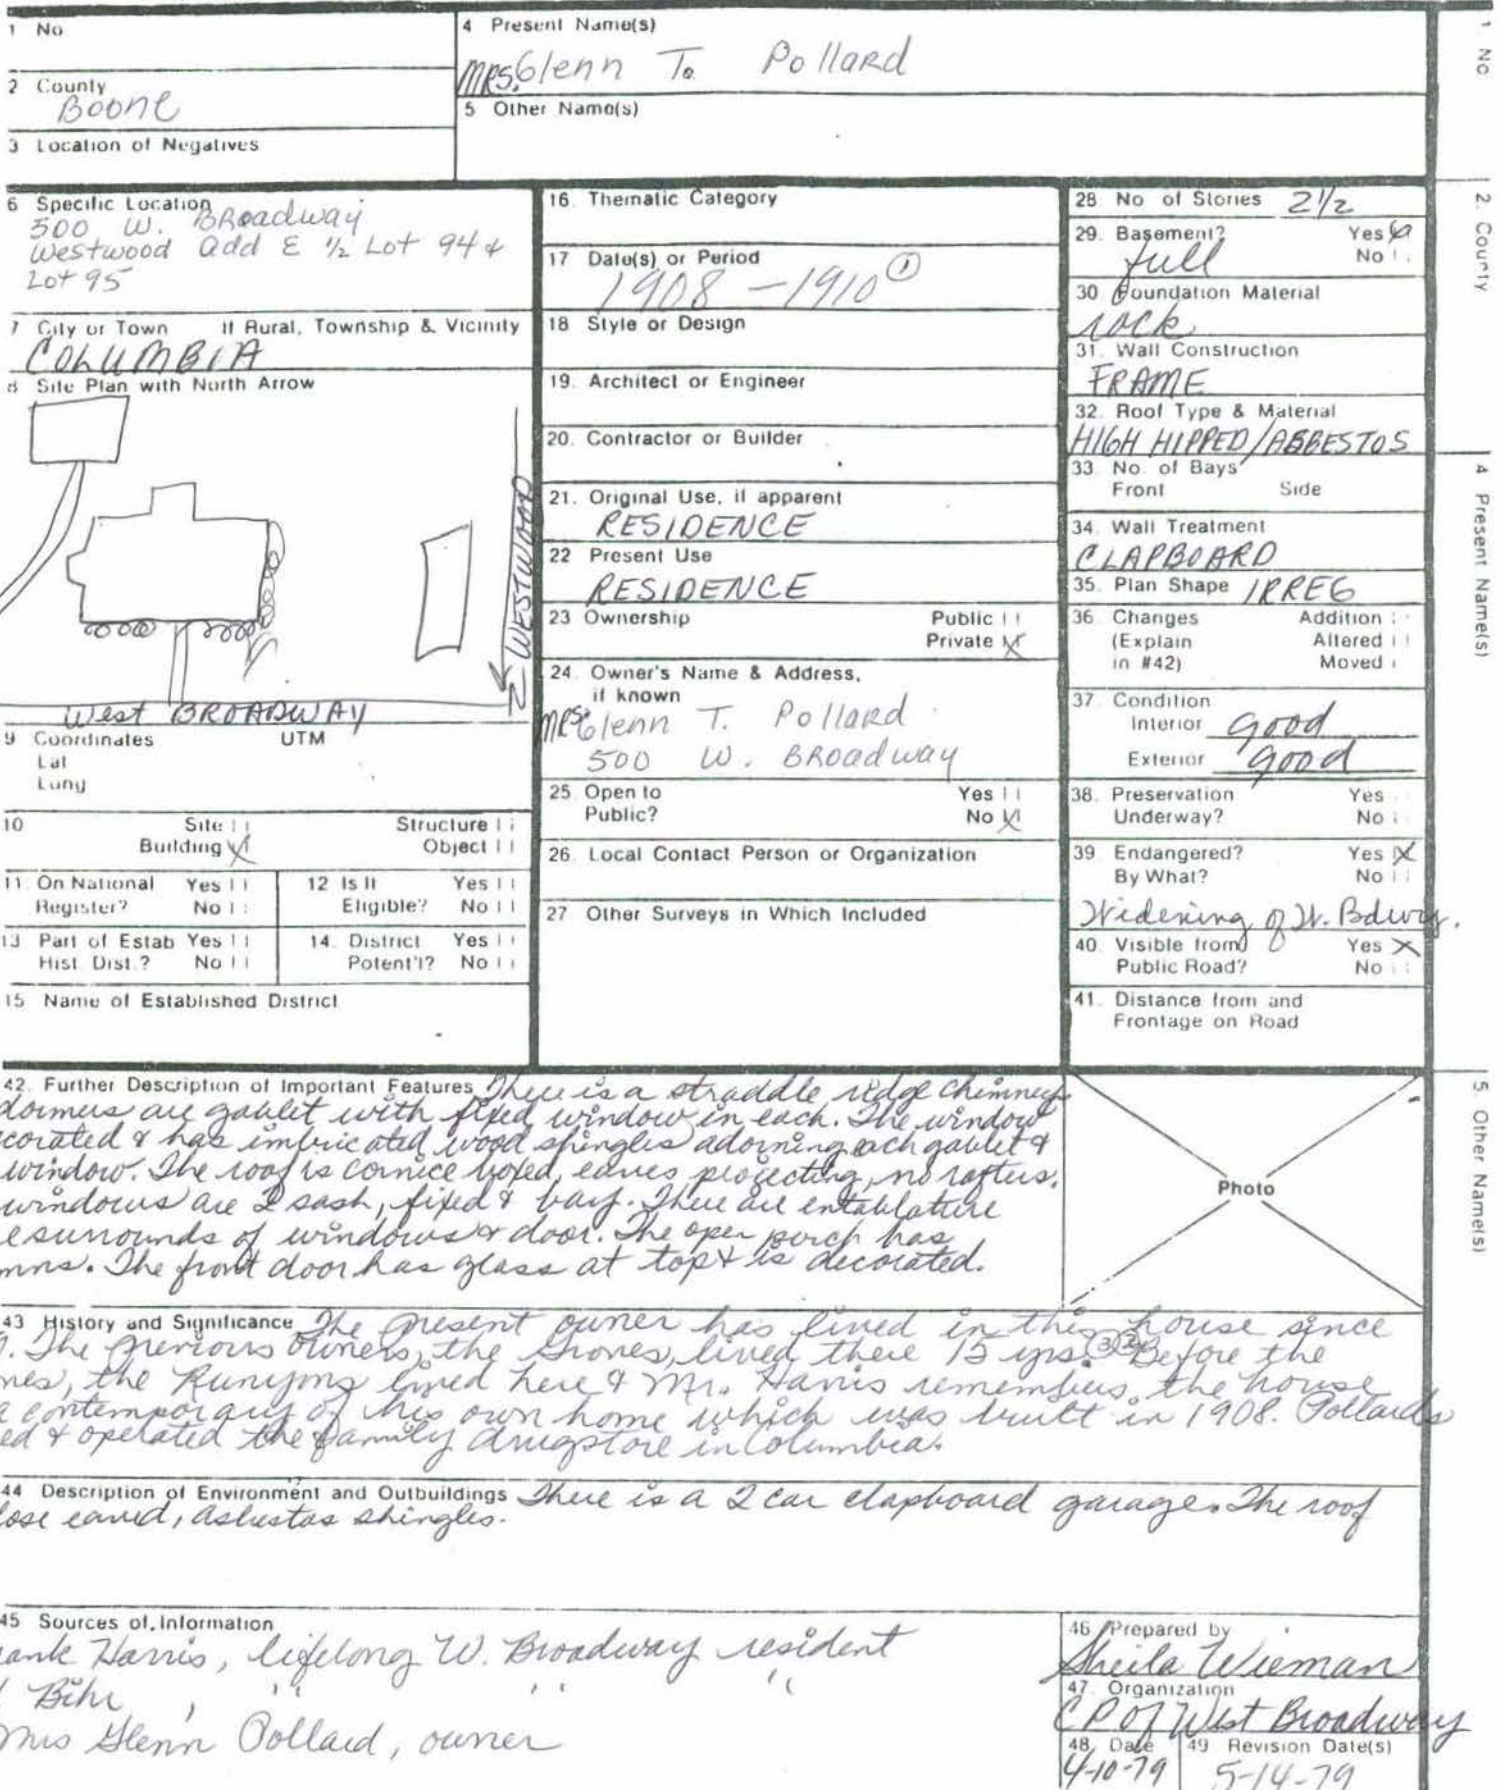 1 No
4 Present Name(s)
Mrs. Glenn T. Pollard
2 County
Boone
5 Other Name(s)
3 Location of Negatives
6 Specific Location
500 W. Broadway
Westwood Add E 1/2 Lot 94 &
Lot 95
7 City or Town If Rural, Township & Vicinity
COLUMBIA
8 Site Plan with North Arrow
WESTWOOD
N
West BROADWAY
9 Coordinates UTM
Lat
Long
10 Site
Structure
Building X
Object
11. On National Register? Yes No
12 Is It Eligible? Yes No
13 Part of Estab Hist. Dist.? Yes No
14. District Potent'l? Yes No
15 Name of Established District
16. Thematic Category
17 Date(s) or Period
1908 - 1910 ①
18 Style or Design
19. Architect or Engineer
20. Contractor or Builder
21. Original Use, if apparent
RESIDENCE
22 Present Use
RESIDENCE
23 Ownership Public
Private X
24. Owner's Name & Address,
if known
Mrs. Glenn T. Pollard
500 W. Broadway
25. Open to Yes
Public? No X
26. Local Contact Person or Organization
27 Other Surveys in Which Included
28. No of Stories 2 1/2
29. Basement? Yes X
full No
30 Foundation Material
rock
31. Wall Construction
FRAME
32. Roof Type & Material
HIGH HIPPED/ASBESTOS
33. No. of Bays
Front Side
34. Wall Treatment
CLAPBOARD
35. Plan Shape IRREG
36. Changes Addition
(Explain Altered
in #42) Moved
37. Condition
Interior good
Exterior good
38. Preservation Yes
Underway? No
39 Endangered? Yes X
By What? No
Widening of W. Bdwy.
40. Visible from Yes X
Public Road? No
41. Distance from and
Frontage on Road
42. Further Description of Important Features There is a straddle ridge chimney
dormers are gablet with fixed window in each. The window
corated & has imbricated wood shingles adorning each gablet &
window. The roof is cornice boxed, eaves projecting, no rafters.
windows are 2 sash, fixed & bay. There are entablature
surrounds of windows & door. The open porch has
mns. The front door has glass at top & is decorated.
Photo
43 History and Significance The present owner has lived in this house since
. The previous owners, the Grones, lived there 15 yrs. ③② Before the
nes, the Runyons lived here & Mr. Harris remembers the house
a contemporary of his own home which was built in 1908. Pollards
ed & operated the family drugstore in Columbia.
44 Description of Environment and Outbuildings There is a 2 car clapboard garage. The roof
lose eaved, asbestos shingles.
45 Sources of Information
ank Harris, lifelong W. Broadway resident
Bihr, " " "
Mrs Glenn Pollard, owner
46 Prepared by
Sheila Wieman
47. Organization
CP of West Broadway
48. Date
4-10-79
49 Revision Date(s)
5-14-79
1 No
2. County
4 Present Name(s)
5 Other Name(s)